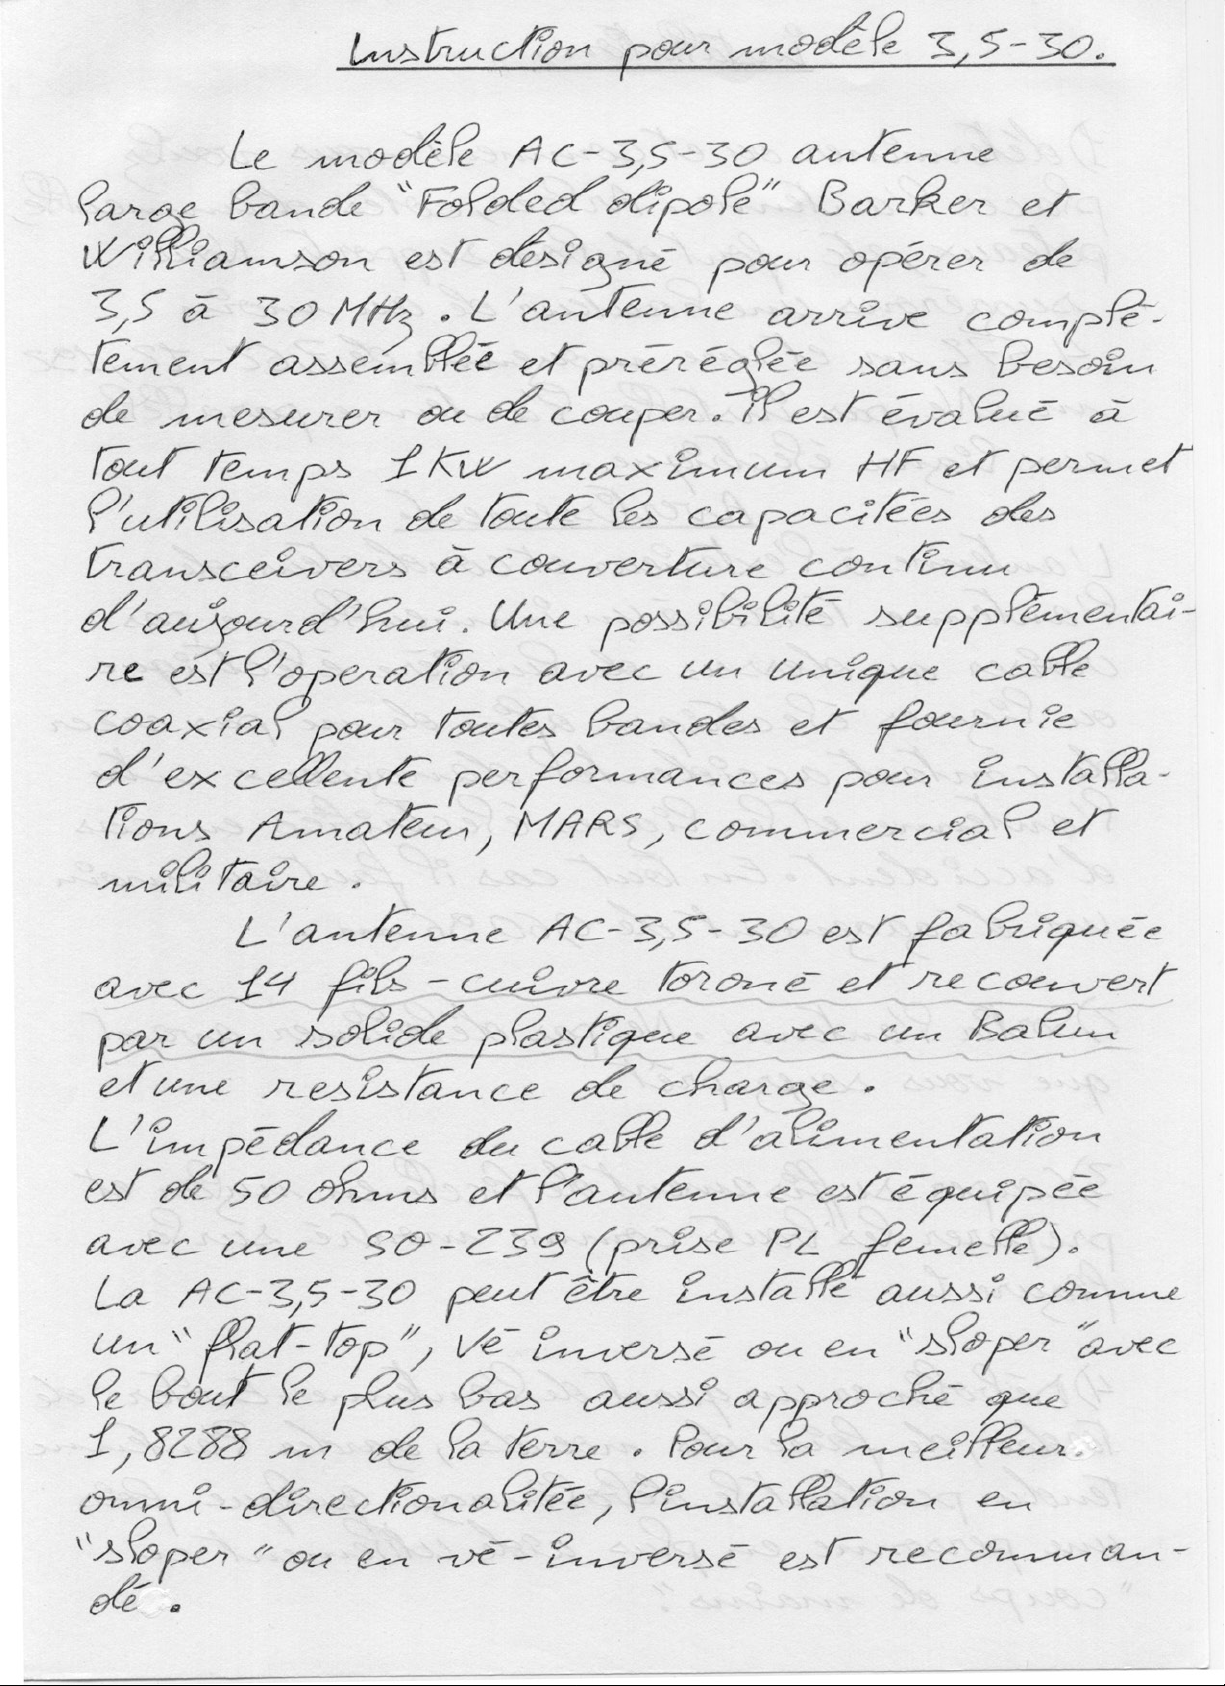 Instruction pour modèle 3,5-30.
Le modèle AC-3,5-30 antenne
large bande "Folded dipole" Barker et
Williamson est designé pour opérer de
3,5 à 30 MHz. L'antenne arrive complè-
tement assemblée et préréglée sans besoin
de mesurer ou de couper. Il est évalué à
tout temps 1KW maximum HF et permet
l'utilisation de toute les capacitées des
transceivers à couverture continu
d'aujourd'hui. Une possibilité supplémentai-
re est l'operation avec un unique cable
coaxial pour toutes bandes et fournie
d'excellente performances pour installa-
tions Amateur, MARS, commercial et
militaire.
L'antenne AC-3,5-30 est fabriquée
avec 14 fils-cuivre toroné et recouvert
par un solide plastique avec un Balun
et une resistance de charge.
L'impédance du cable d'alimentation
est de 50 ohms et l'antenne est équipée
avec une SO-239 (prise PL femelle).
La AC-3,5-30 peut être installé aussi comme
un "flat-top", Vé inversé ou en "sloper" avec
le bout le plus bas aussi approché que
1,8288 m de la terre. Pour la meilleur
omni-directionalitée, l'installation en
"sloper" ou en vé-inversé est recomman-
dé.